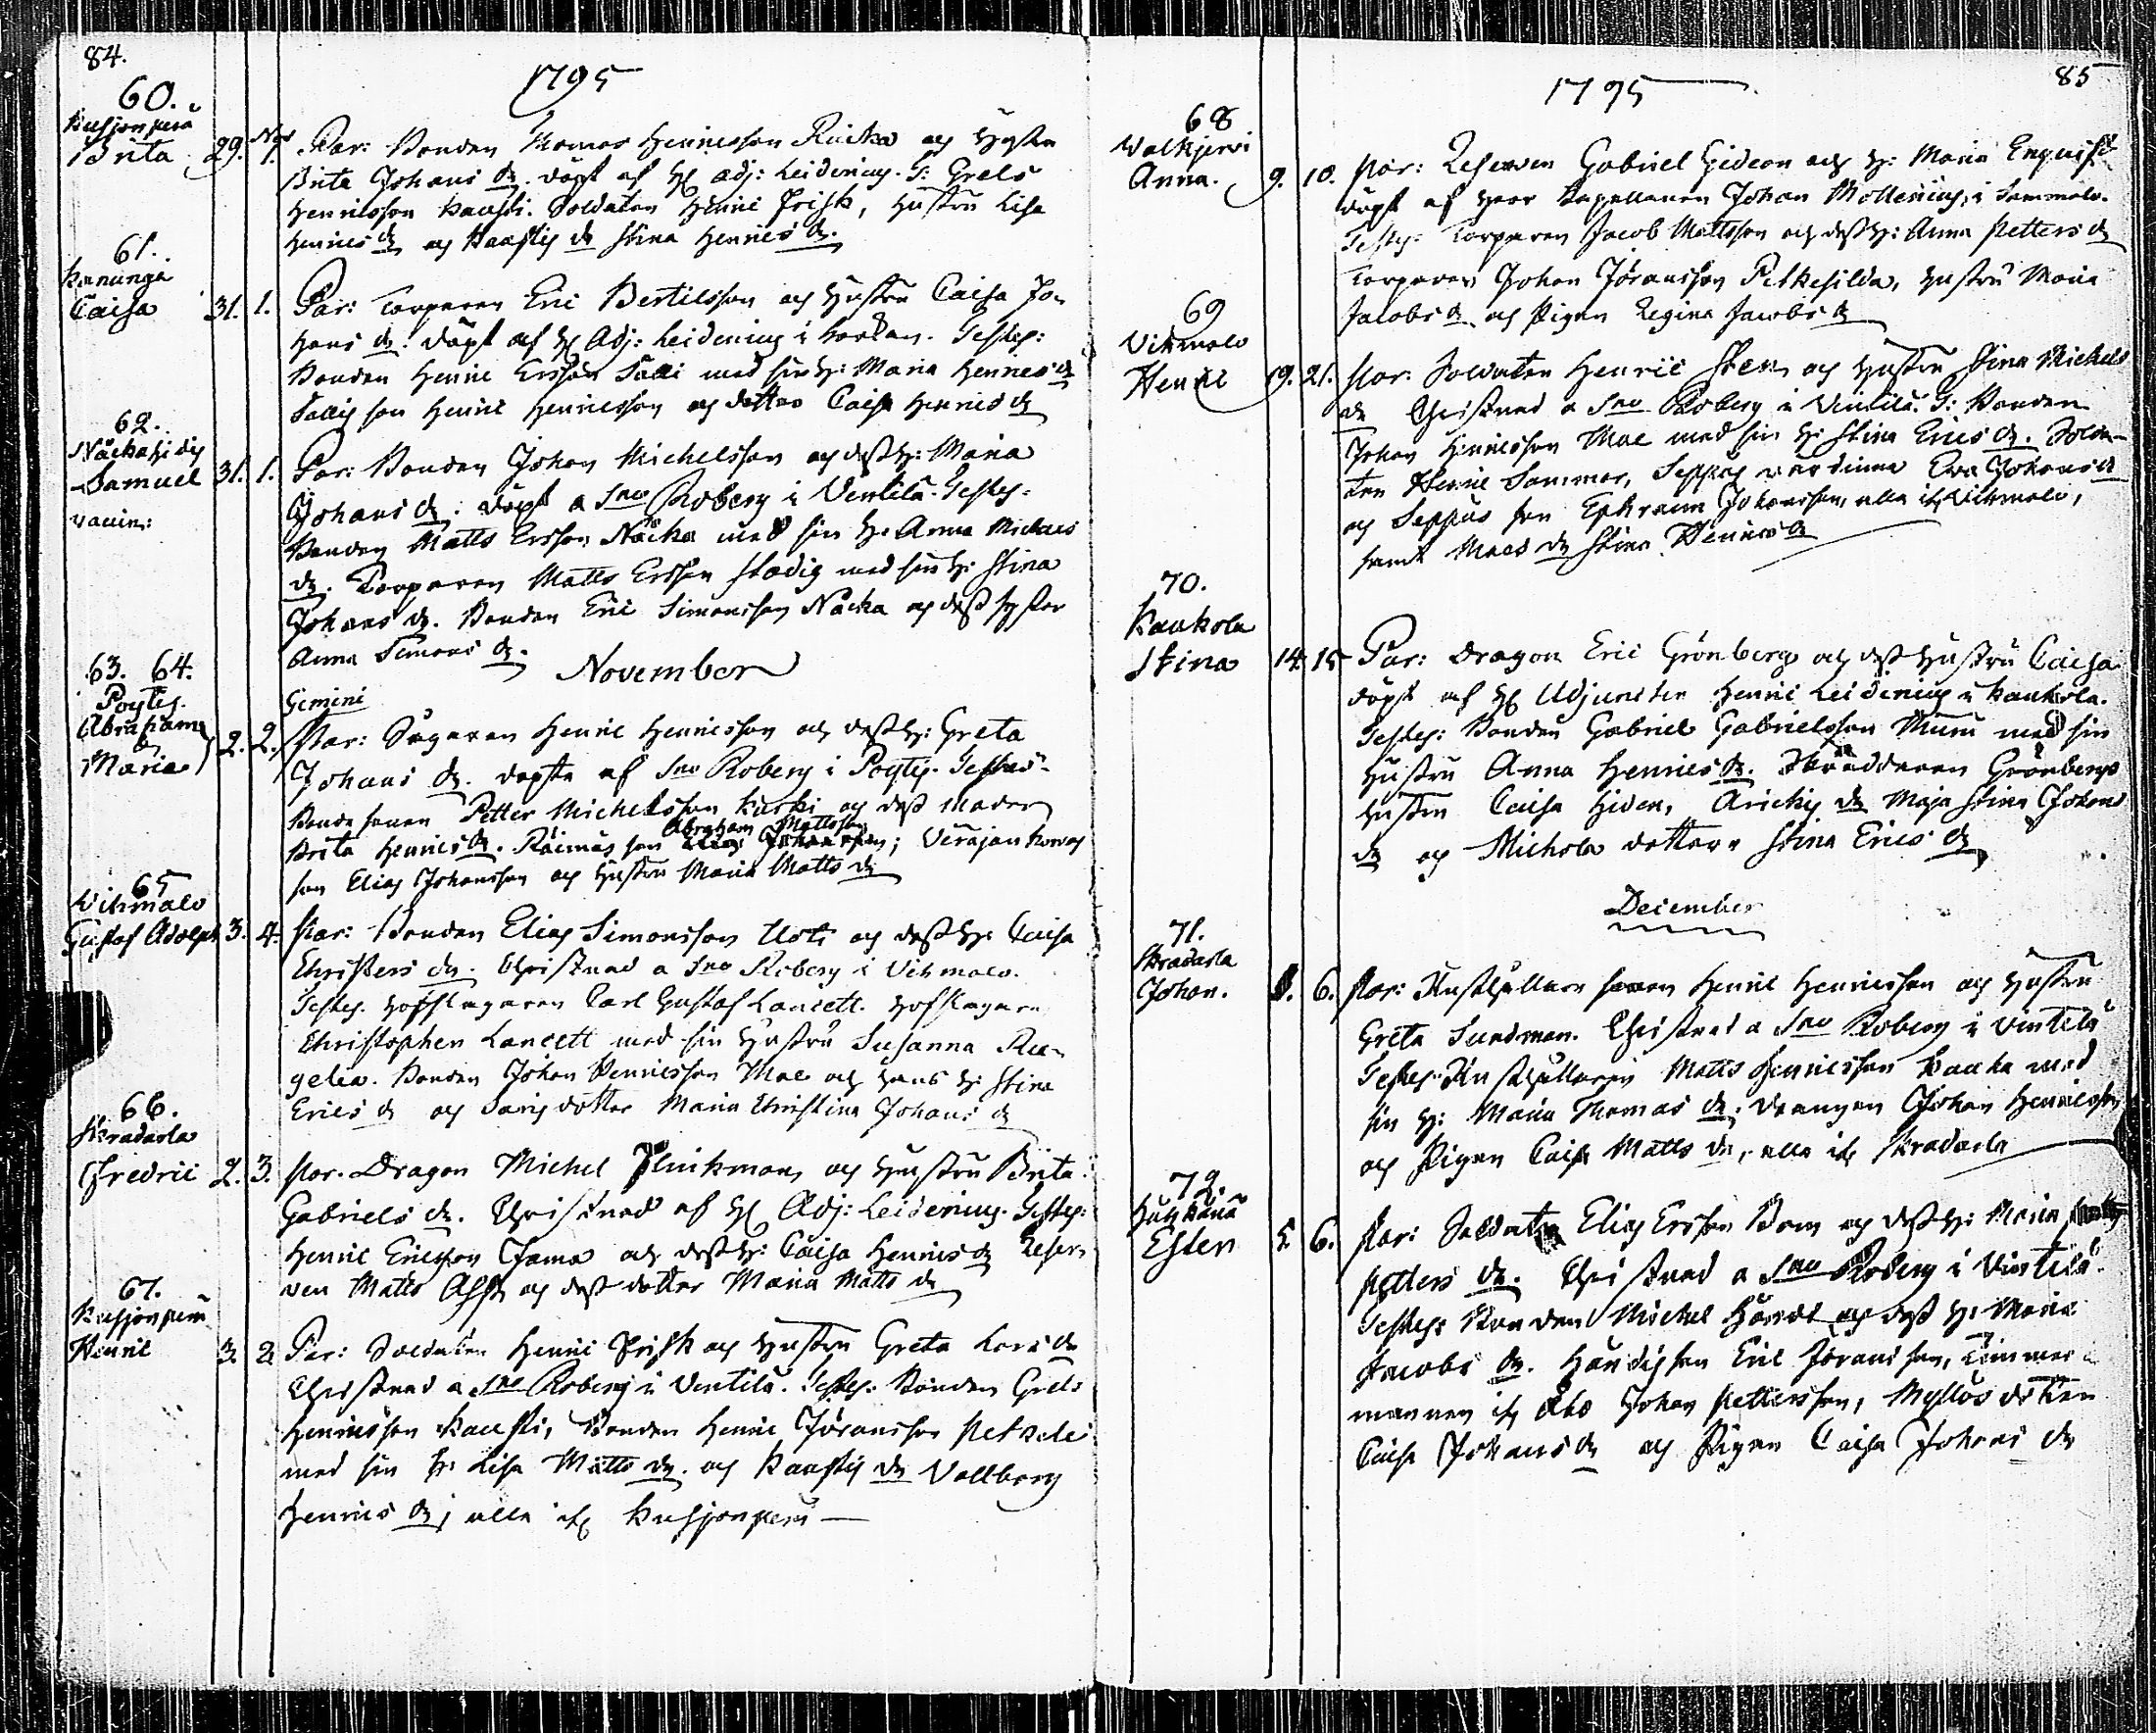 84.
1795
60.
Kusjonperä
Brita 29. Nov 1. Par: Bonden Thomas Henricsson Rucka och Hustru
Brita Johans dr. döpt af H Adj: Leidenius. T: Grels
Henricsson Kauppi. Soldaten Henric Frisk, Hustru Lisa
Henrics dr och Kauppis dr Stina Henrics dr.
61.
Kanunga
Caisa 31. 1. Par: Torparen Eric Bertilsson och Hustru Caisa Jo-
hans dr. döpt af H Adj: Leidenius i Kyrkan. Testes:
Bonden Henric Ersson Talli med sin H: Maria Henrics dr
Tallis son Henric Henricsson och dotter Caisa Henrics dr
62.
Näckahidis
Samuel 31. 1. Par: Bonden Johan Michelsson och dess H: Maria
Johans dr. döpt a Sno Roberg i Ventilä. Testes:
Bonden Matts Ersson Näcka med sin H: Anna Michels
dr. Torparen Matts Ersson Stadig med sin H: Stina
Johans dr. Bonden Eric Simonsson Näcka och dess syster
Anna Simons dr.
November
63. 64.
Pöytis
Abraham
&
Maria 2. 2. Gemini
Par: Sågaren Henric Henricsson och dess H: Greta
Johans dr. döpta af Sno Roberg i Pöytis. Testes:
Bonde sonen Petter Michelsson Kurki och dess moder
Brita Henrics dr. Räimäs son Abraham Mattsson; Verajankorvas
son Elias Johansson och Hustru Maria Matts dr
65
Vihmalo
Gustaf Adolph 3. 4. Par: Bonden Elias Simonsson Uoti och dess H: Caisa
Christers dr. Christnad a Sno Roberg i Vihmalo.
Testes. Hofslagaren Carl Gustaf Lancett. Hofslagaren
Christopher Lancett med sin Hustru Susanna Ru-
gelia. Bonden Johan Henricsson Mae och hans H: Stina
Erics dr och dotter Maria Christina Johans dr
66.
Skradarla
Fredric 2. 3. Par. Dragon Michel Flinkman och Hustru Brita
Gabriels dr. Christnad af H Adj: Leidenius. Testes:
Henric Ericsson Jama och dess H: Caisa Henrics dr Reser-
ven Matts Asp och dess dotter Maria Matts dr
67.
Kusjonperä
Henric 3. 2. Par: Soldaten Henric Frisk och Hustru Greta Lars dr
Christnad a Sno Roberg i Ventilä. Testes: Bonden Grels
Henricsson Kauppi, Bonden Henric Jöransson
med sin H: Lisa Matts dr. och Kauppis dr Vallborg
Henrics dr, alla ifr Kusjonperä
85
1795
68
Walkjervi
Anna. 9. 10. Par: Reserven Gabriel Gideon och H: Maria Enquist
döpt af Herr Capellanen Johan Mollerius, i Sammalo.
Testes: Torparen Jacob Mattsson och dess H: Anna Petters dr
Torparen Johan Jöransson Pitkesilda, Hustru Maria
Jacobs dr, och Pigan Regina Jacobs dr
69
Vihmalo
Henric 19. 21. Par: Soldaten Henric Sten och Hustru Stina Michels
dr Christnad a Sno Roberg i Ventilä. T: Bonden
Johan Henricsson Mae med sin H: Stina Erics dr. Solda-
ten Henric Sommar, Seppäs värdinna Eva Johans dr
och Seppäs son Ephraim Johansson, alla ifr Vihmalo,
samt Maes dr Stina Henrics dr
70.
Kaukola
Stina 14. 15 Par: Dragon Eric Grönberg och dess Hustru Caisa
döpt af H Adjuncten Henric Leidenius i Kaukola.
Testes: Bonden Gabriel Gabrielsson Muru med sin
Hustru Anna Henrics dr. Skräddaren Grönbergs
Hustru Caisa Hiden, dr Maja Stina Johans
dr och Michola dotter Stina Erics dr
December
71.
Skradarla
Johan. 5. 6. Par: Rusthållare sonen Henric Henricsson och Hustru
Greta Sundman. Christnad a Sno Roberg i Ventilä
Testes: Rusthållaren Matts Henricsson Kauka med
sin H: Maria Thomas dr. Drängen Johan Henricsson
och Pigan Caisa Matts dr, alla ifr Skradarla
72.
Esten 5. 6. Par: Soldaten Elias Ersson Bom och dess H: Maria
Petters dr. Christnad a Sno Roberg i Ventilä.
Testes: Bonden Michel och dess H: Maria
Jacobs dr. son Eric Jöransson, Timmer-
mannen ifr Åbo Johan Pettersson, dotter
Caisa Johans dr och Pigan Caisa Johans dr